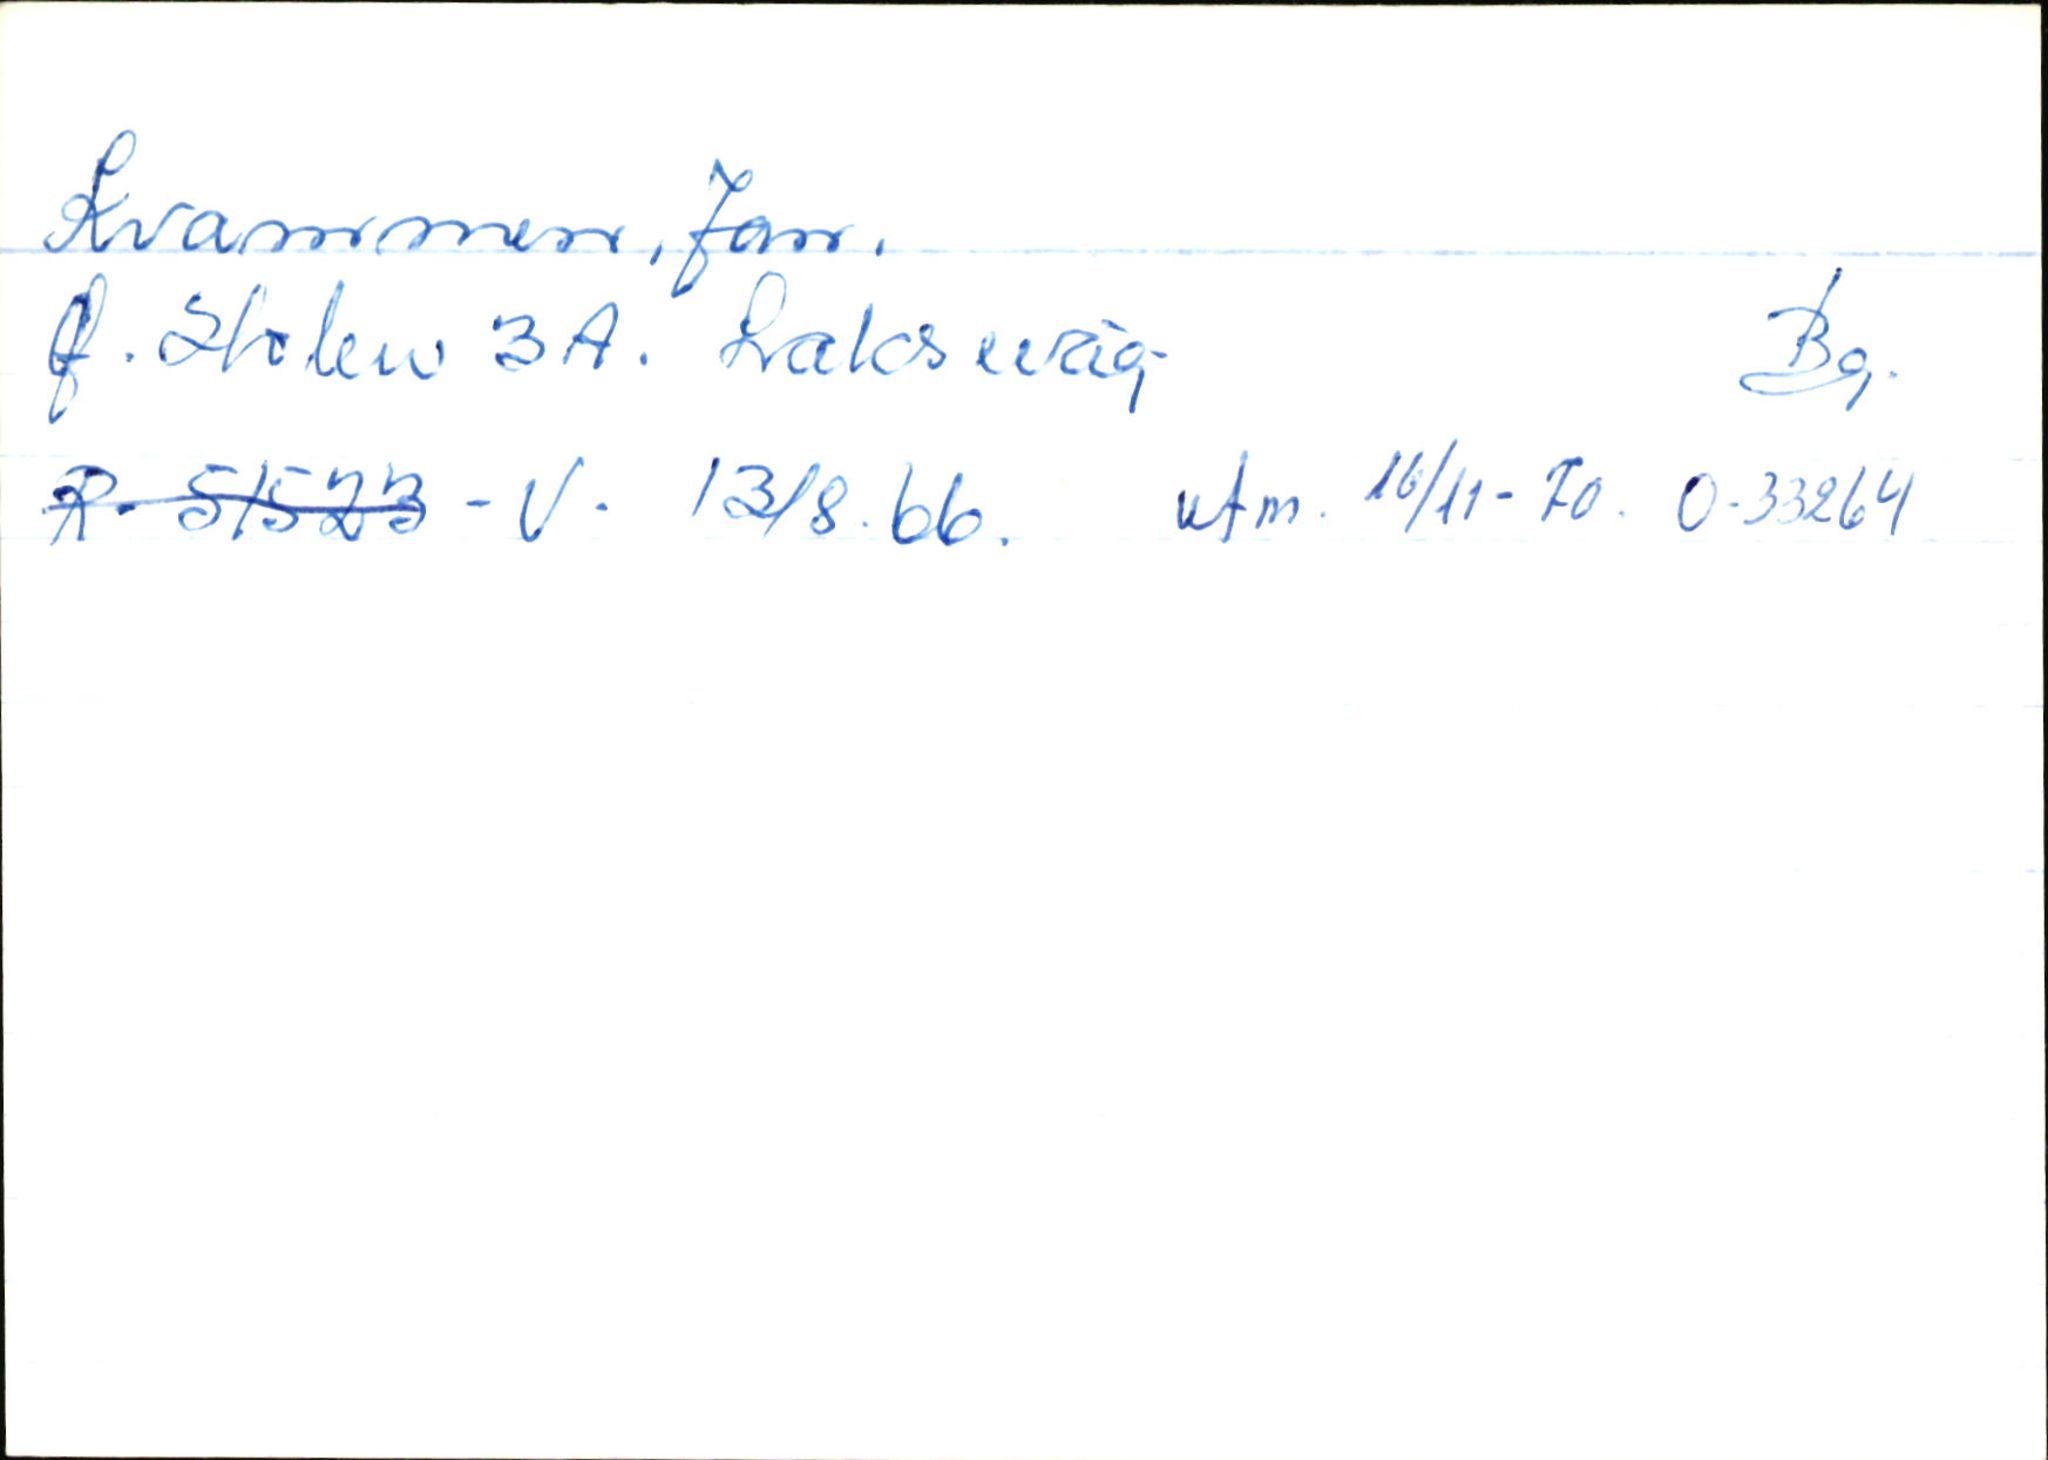 Kvammen, Jan.
J. Stolen 3 A. Laksevåg Bg.
R- 51523 - V. 13/8. 66. utm. 16/11-70. O-33264